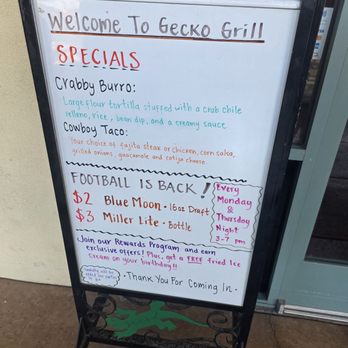 Welcome To Gecko Grill
SPECIALS
Crabby Burro:
Large flour tortilla stuffed with a crab chile
relleno, rice, bean dip, and a creamy sauce
Cowboy Taco:
Your choice of fajita steak or chicken, corn salsa,
grilled onions, guacamole and cotija cheese.
FOOTBALL IS BACK!
$2 Blue Moon - 16oz Draft
$3 Miller Lite - Bottle
Every
Monday
&
Thursday
Night
3-7 pm
Join our Rewards Program and earn
exclusive offers! Plus, get a FREE fried Ice
cream on your birthday!!
· Thank You For Coming In ·